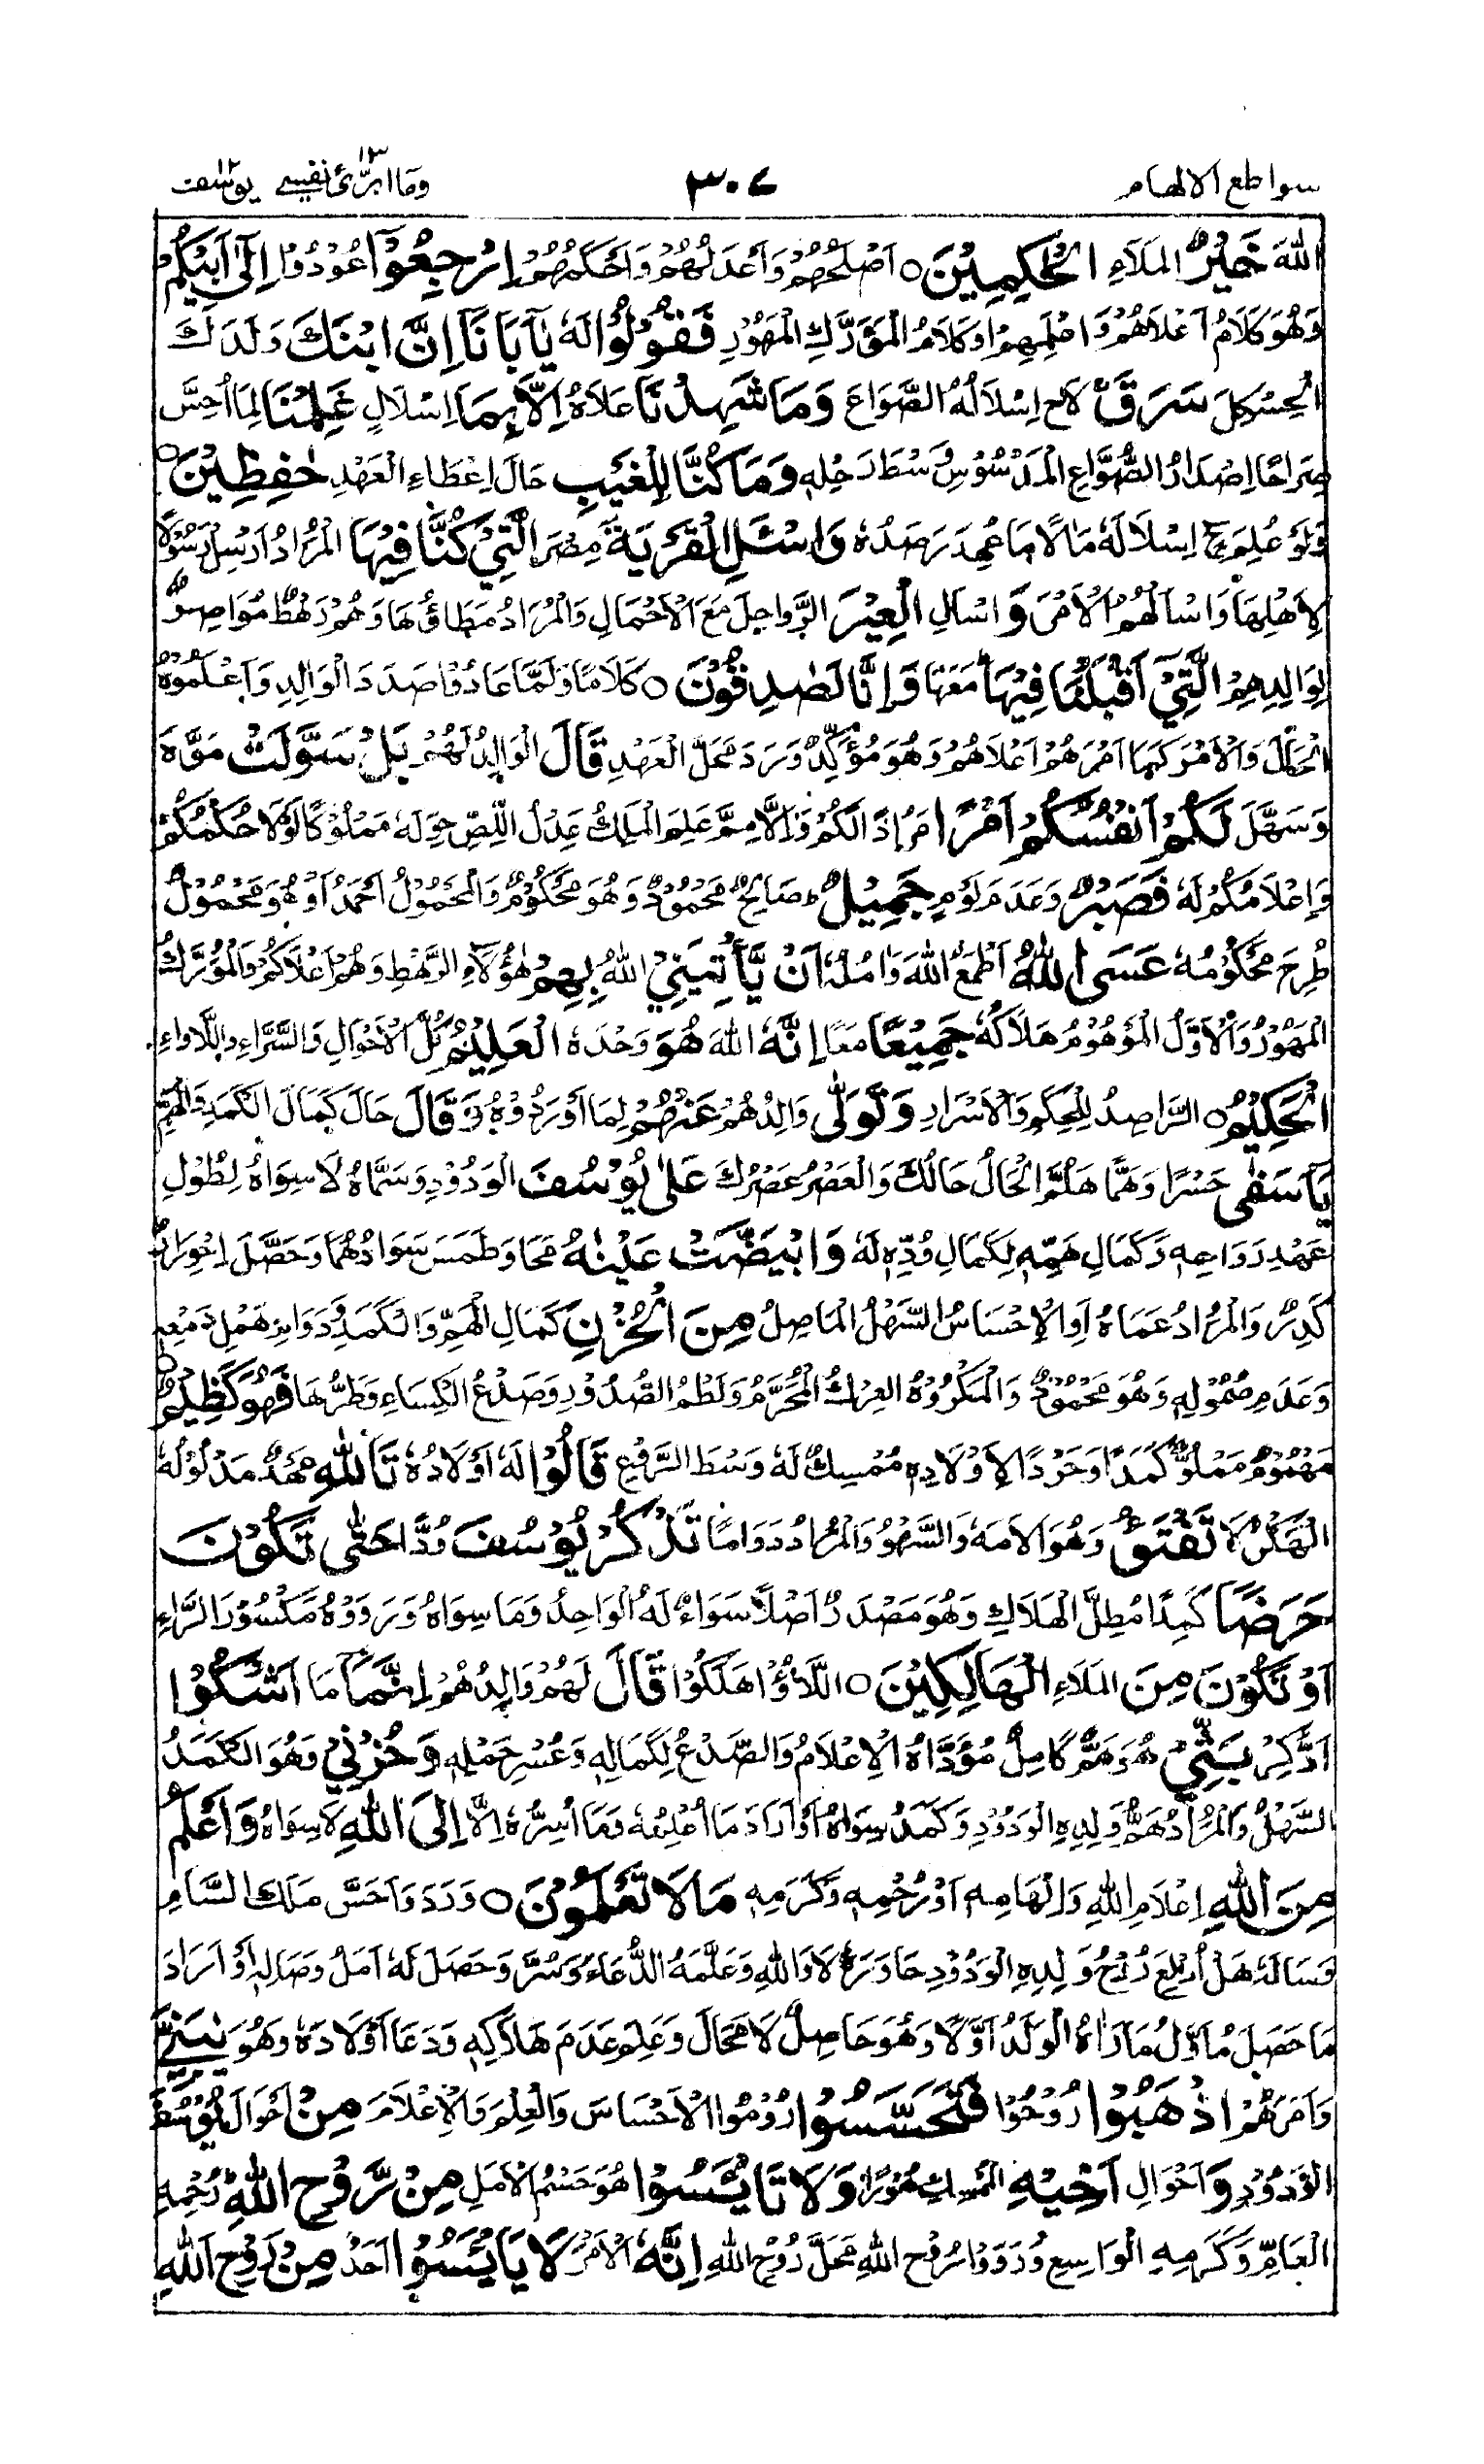 سواطع الالهام ٣٠٧ وما ابرئ نفسي ١٣ يوسف ١٢
اللهَ خَيْرُ المَلَاءِ الْحٰكِمِيْنَ ○ اَصْلَحُهُمْ وَاَعْدَلُهُمْ وَاَحْكَمُهُمْ اِرْجِعُوْٓا عُوْدُوْا اِلٰٓى اَبِيْكُمْ
وَهُوَ كَلَامُ اَعْلَاهُمْ وَاحْلَمِهِمْ اَوْ كَلَامُ الْمَهُوْدِ فَقُوْلُوْا لَهُ يٰٓاَبَانَآ اِنَّ ابْنَكَ وَلَدَكَ
الْحِسْكِلَ سَرَقَ لَاحَ اِسْلَالُهُ الصُّوَاعَ وَمَا شَهِدْنَآ عَلَاهُ اِلَّا بِمَا اِسْلَالٍ عَلِمْنَا لِمَا اُحِسَّ
صِرَاحًا اِصْدَارُ الصُّوَاعِ الْمَدْسُوْسِ وَسَطَ رَحْلِهِ وَمَا كُنَّا لِلْغَيْبِ حَالَ اِعْطَاءِ الْعَهْدِ حٰفِظِيْنَ ○
وَلَوْ عُلِمَ اِسْلَالُهُ مَاٰلًا مَا عُهِدَ رَصَدُهُ وَاسْئَلِ الْقَرْيَةَ مِصْرَ الَّتِيْ كُنَّا فِيْهَا الْمُرَادُ اَرْسِلْ رَسُوْلًا
لِاَهْلِهَا وَاسْاَلْهُمُ الْاَمْرَ وَ اسْاَلِ الْعِيْرَ الرَّوَاحِلَ مَعَ الْاَحْمَالِ وَالْمُرَادُ وَهُمْ رَهْطٌ مُوَاصِدٌ
لِوَالِدِهِمْ الَّتِيْٓ اَقْبَلْنَا فِيْهَا مَعَهَا وَاِنَّا لَصٰدِقُوْنَ ○ كَلَامًا وَلَمَّا عَادُوْا صَدَدَ الْوَالِدِ وَاَعْلَمُوْهُ
الْحَالَ وَالْاَمْرَ كَمَا اَمَرَهُمْ اَعْلَاهُمْ وَهُوَ مُؤَكِّدٌ وَرَدَ مَحَلَّ الْعَهْدِ قَالَ الْوَالِدُ لَهُمْ بَلْ سَوَّلَتْ مَوَّهَ
وَسَهَّلَ لَكُمْ اَنْفُسُكُمْ اَمْرًا مُرَادًا لَكُمْ وَاِلَّا مِمَّ عَلِمَ الْمَلِكُ عِدْلُ اللِّصِّ حِوَلَهُ مَمْلُوْكًا لَوْلَا حُكْمُكُمْ
وَاِعْلَامُكُمْ لَهُ فَصَبْرٌ وَعَدَمُ لَوْمٍ جَمِيْلٌ صَالِحٌ مَحْمُوْدٌ وَهُوَ مَحْكُوْمٌ وَالْمَحْمُوْلُ اَحْمَدُ اَوْ هُوَ مَحْمُوْلٌ
طُرِحَ مَحْكُوْمُهُ عَسَى اللهُ اَطْمَعُ اللهَ وَاٰمُلُهُ اَنْ يَّاْتِيَنِيْ اللهُ بِهِمْ هٰؤُلَاءِ الرَّهْطِ وَهُمْ اَعْلَاكُمْ
الْمَهُوْدُ وَالْاَوَّلُ الْمَوْهُوْمُ هَلَاكُهُ جَمِيْعًا مَعًا اِنَّهُ اللهَ هُوَ وَحْدَهُ الْعَلِيْمُ كُلَّ الْاَحْوَالِ وَالسَّرَّاءِ وَاللَّاْوَاءِ
الْحَكِيْمُ ○ الرَّاصِدُ لِلْحِكَمِ وَالْاَسْرَارِ وَتَوَلّٰى وَالِدُهُمْ عَنْهُمْ لِمَا اَوْرَدُوْهُ وَقَالَ حَالَ كَمَالِ الْكَمَدِ وَالْهَمِّ
يٰٓاَسَفٰى حَسْرًا وَهَمًّا هَلُمَّ الْحَالُ حَالُكَ وَالْعَصْرُ عَصْرُكَ عَلٰى يُوْسُفَ الْوَدُوْدِ وَسَمَّاهُ لَا سِوَاهُ لِطُوْلِ
عَهْدِ رَوَاحِهِ وَكَمَالِ هَمِّهِ لِكَمَالِ وُدِّهِ لَهُ وَابْيَضَّتْ عَيْنٰهُ مَحَا وَطَمَسَ سَوَادُهُمَا وَحَصَلَ اِحْوِرَارٌ
كَدِرٌ وَالْمُرَادُ عَمَاهُ اَوِ الْاِحْسَاسُ السَّهْلُ الْمَاصِلُ مِنَ الْحُزْنِ كَمَالِ الْهَمِّ وَالْكَمَدِ وَدَوَامِ هَمْلِ دَمْعِهِ
وَعَدَمِ وَهُوَ مَحْمُوْدٌ وَالْمَكْرُوْهُ الْمُحَرَّمُ وَلَطْمُ الصُّدُوْرِ وَصَدْعُ الْكِسَاءِ وَطَرُّهَا فَهُوَ كَظِيْمٌ ○
مَهْمُوْمٌ مَمْلُوٌّ كَمَدًا وَحَرْدًا لِاَوْلَادِهِ مُمْسِكٌ لَهُ وَسَطَ الرَّوْعِ قَالُوْا لَهُ اَوْلَادُهُ تَاللهِ عَهْدٌ مَدْلُوْلُهُ
الْهَكْرُ لَا تَفْتَؤُا وَهُوَ الْاَمَهُ وَالسَّهْوُ وَالْمُرَادُ دَوَامًا تَذْكُرُ يُوْسُفَ وُدًّا حَتّٰى تَكُوْنَ
حَرَضًا كَمِدًا مُطِلَّ الْهَلَاكِ وَهُوَ مَصْدَرٌ اَصْلًا سَوَاءٌ لَهُ الْوَاحِدُ وَمَا سِوَاهُ وَرَوَوْهُ مَكْسُوْرَ الرَّاءِ
اَوْ تَكُوْنَ مِنَ المَلَاءِ الْهَالِكِيْنَ ○ اللَّاؤُا هَلَكُوْا قَالَ لَهُمْ وَالِدُهُمْ اِنَّمَآ مَا اَشْكُوْا
اَدَّكِرُ بَثِّيْ هُوَ هَمٌّ كَامِلٌ مُؤَدَّاهُ الْاِعْلَامُ وَالصَّدْعُ لِكَمَالِهِ وَعُسْرِ حَمْلِهِ وَحُزْنِيْ وَهُوَ الْكَمَدُ
السَّهْلُ وَالْمُرَادُ هَمُّ وَلَدِهِ الْوَدُوْدِ وَكَمَدُ سِوَاهُ اَوْ اَرَادَ مَا اُعْلِمُهُ وَمَا اُسِرُّهُ اِلَّا اِلَى اللهِ لَا سِوَاهُ وَاَعْلَمُ
مِنَ اللهِ اِعْلَامِ اللهِ وَاِلْهَامِهِ اَوْ رُحْمِهِ وَكَرَمِهِ مَا لَا تَعْلَمُوْنَ ○ وَرَدَ وَاَحَسَّ مَلَكَ السَّامِ
وَسَاَلَهُ هَلْ رُوْحُ وَلَدِهِ الْوَدُوْدِ حَاوَرَهُ لَا وَاللهِ وَعَلَّمَهُ الدُّعَاءَ وَسُرَّ وَحَصَلَ لَهُ اَمَلُ وِصَالِهِ اَوْ اَرَادَ
مَا حَصَلَ مُاَوَّلُ مَا رَاٰهُ الْوَلَدُ اَوَّلًا وَهُوَ حَاصِلٌ لَا مَحَالَ وَعَلِمَ عَدَمَ هَلَاكِهِ وَدَعَا اَوْلَادَهُ وَهُوَ يٰبَنِيَّ
وَاَمَرَهُمْ اذْهَبُوْا رُوْحُوْا فَتَحَسَّسُوْا رُوْمُوا الْاِحْسَاسَ وَالْعِلْمَ وَالْاِعْلَامَ مِنْ اَحْوَالِ يُوْسُفَ
الْوَدُوْدِ وَ اَحْوَالِ اَخِيْهِ الْمُمْسِكِ وَلَا تَايْئَسُوْا هُوَ حَسْمُ الْاَمَلِ مِنْ رَّوْحِ اللهِ رُحْمِهِ
الْعَامِّ وَكَرَمِهِ الْوَاسِعِ وَرَوَوْا رُوْحِ اللهِ مَحَلَّ رَوْحِ اللهِ اِنَّهُ الْاَمْرُ لَا يَايْئَسُ اَحَدٌ مِنْ رَّوْحِ اللهِ